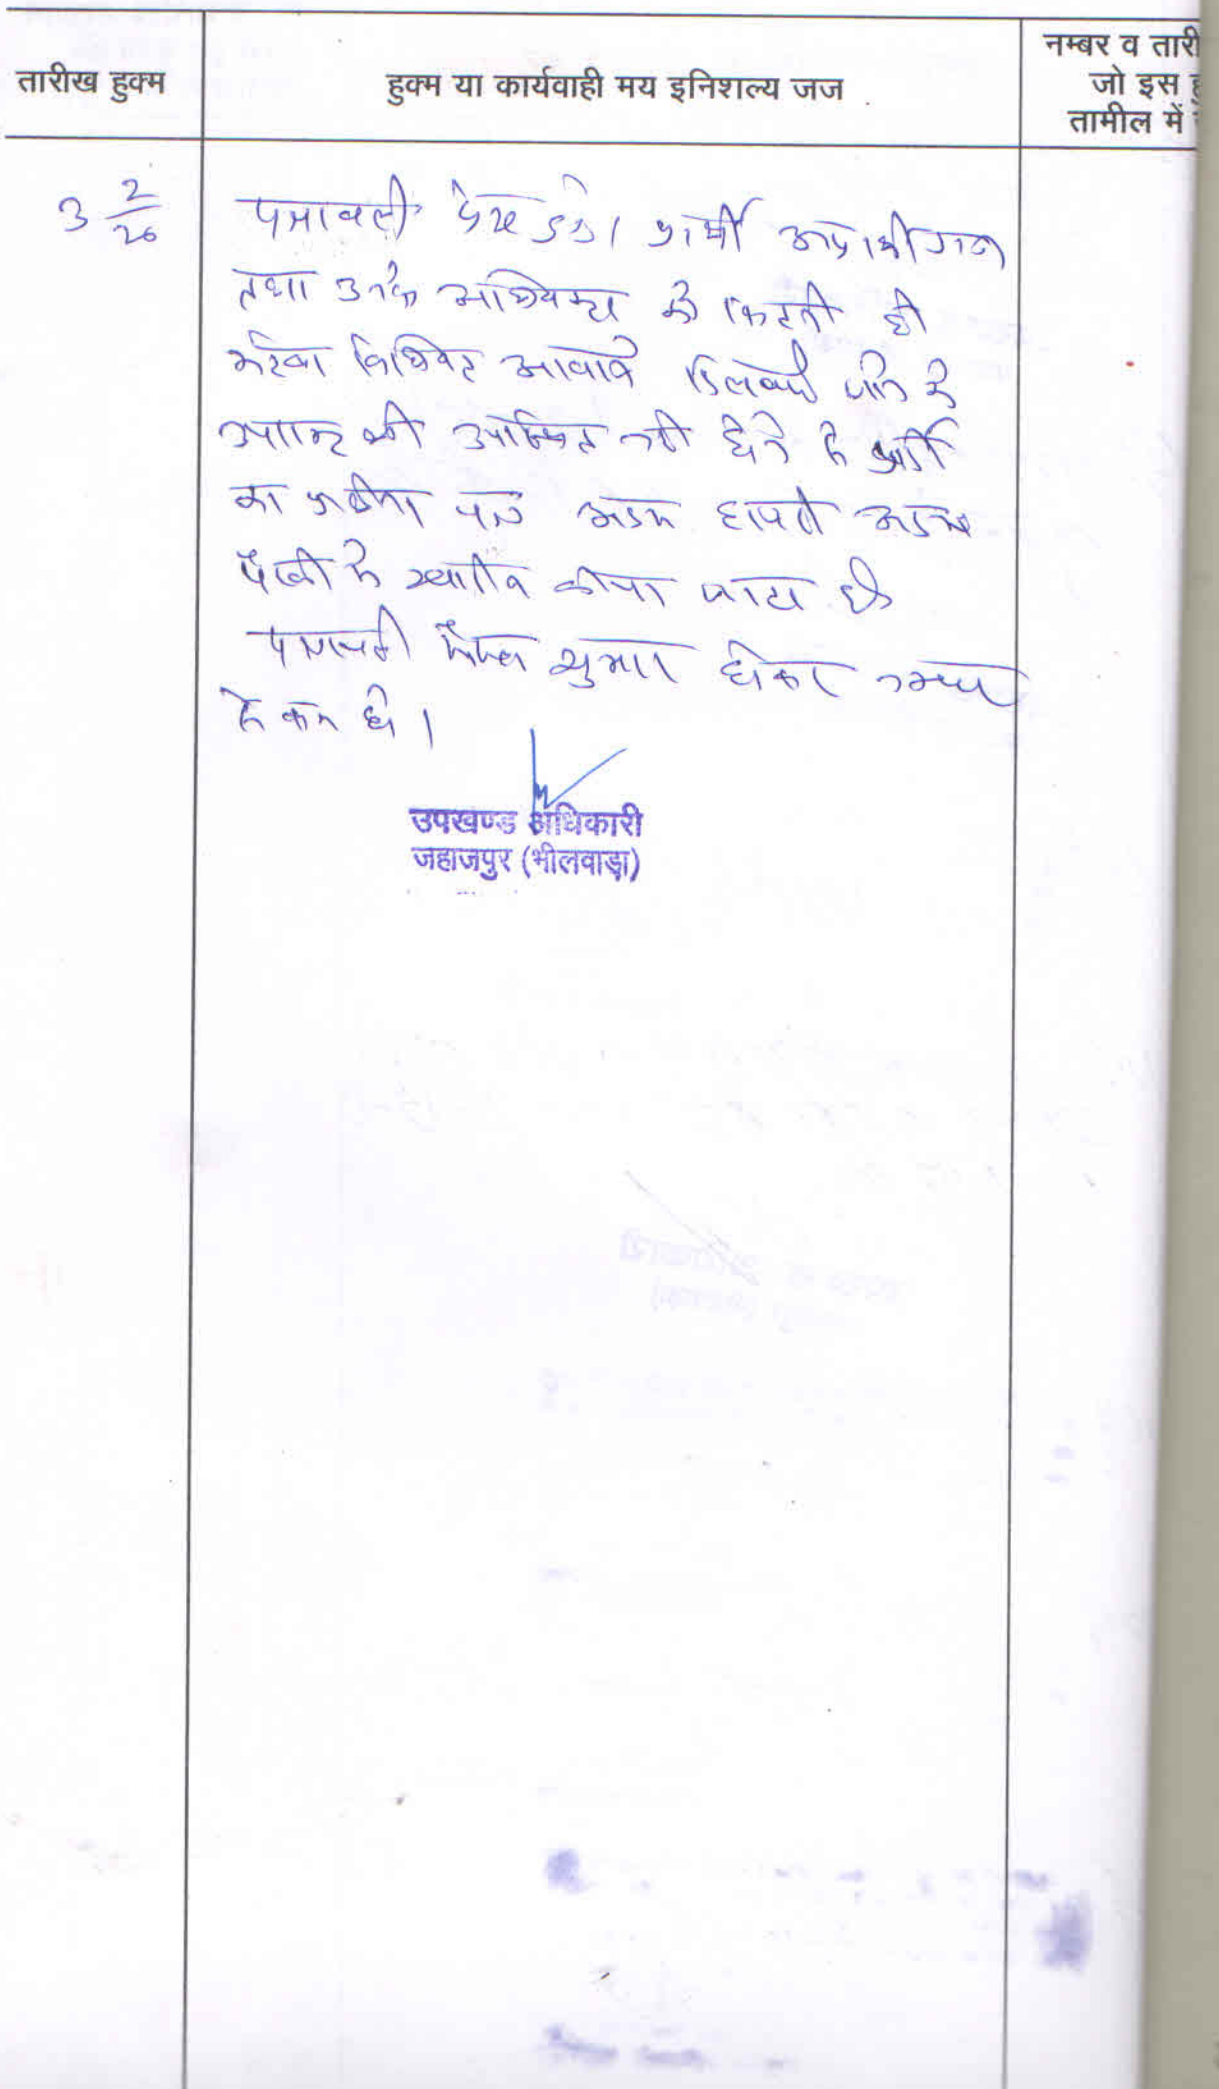 तारीख हुक्म
हुक्म या कार्यवाही मय इनिशल्य जज
नम्बर व तारी
जो इस हु
तामील में
3 2/20
पत्रावली पेश हुई। प्रार्थी अप्रार्थीगण
तथा उनके को
आवाजे जाने के
उपरान्त भी उपस्थित नही होने से प्रार्थी
का प्रार्थना पत्र अदम हाजरी अदम
पैरवी में खारीज कीया जाता है
पत्रावली फैसल शुमार होकर नम्बर
से कम हो।
उपखण्ड अधिकारी
जहाजपुर (भीलवाड़ा)